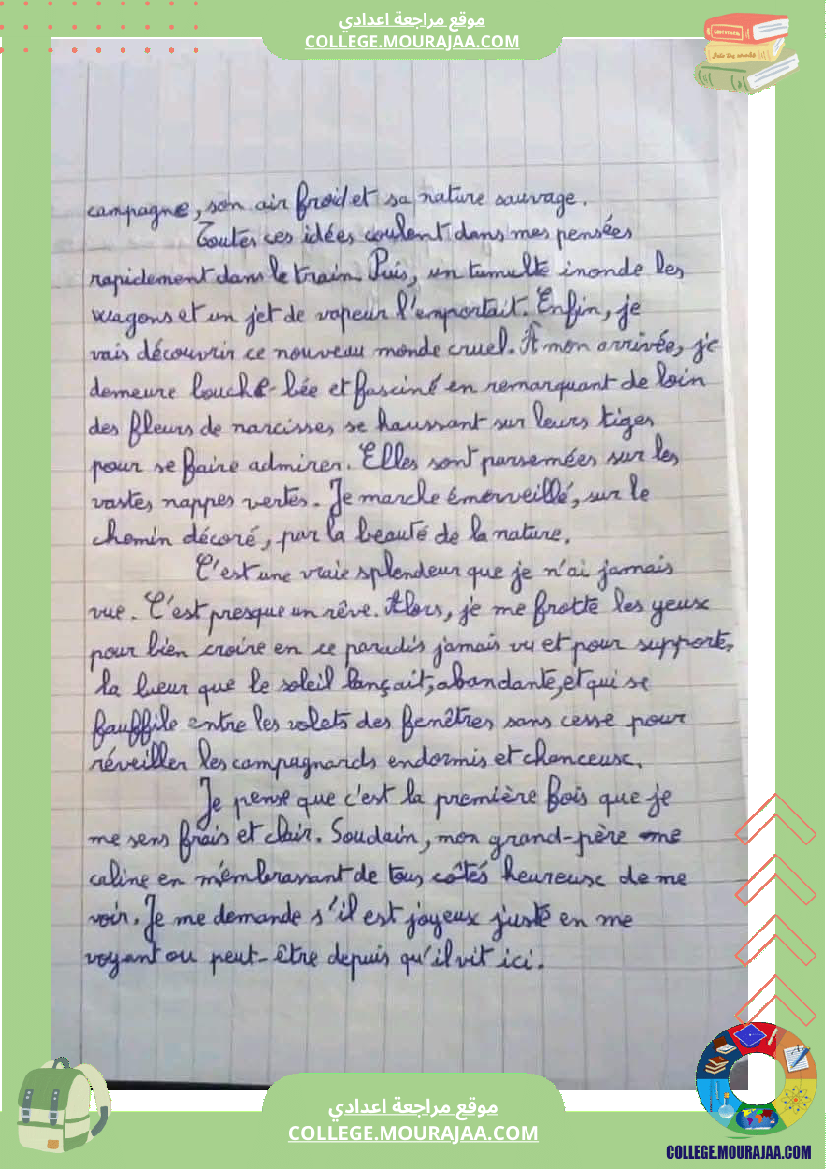 موقع مراجعة اعدادي
COLLEGE.MOURAJAA.COM
campagne, son air froid et sa nature sauvage.
Toutes ces idées coulent dans mes pensées
rapidement dans le train. Puis, un tumulte inonde les
wagons et un jet de vapeur l'emportait. Enfin, je
vais découvrir ce nouveau monde cruel. À mon arrivée, je
demeure bouche-bée et fasciné en remarquant de loin
des fleurs de narcisses se haussant sur leurs tiges
pour se faire admirer. Elles sont parsemées sur les
vastes nappes vertes. Je marche émerveillé, sur le
chemin décoré, par la beauté de la nature.
C'est une vraie splendeur que je n'ai jamais
vue. C'est presque un rêve. Alors, je me frotte les yeux
pour bien croire en ce paradis jamais vu et pour supporter
la lueur que le soleil lançait, abandante, et qui se
fauffile entre les volets des fenêtres sans cesse pour
réveiller les campagnards endormis et chanceux.
Je pense que c'est la première fois que je
me sens frais et clair. Soudain, mon grand-père me
caline en m'embrassant de tous côtés heureux de me
voir. Je me demande s'il est joyeux juste en me
voyant ou peut-être depuis qu'il vit ici.
موقع مراجعة اعدادي
COLLEGE.MOURAJAA.COM
COLLEGE.MOURAJAA.COM